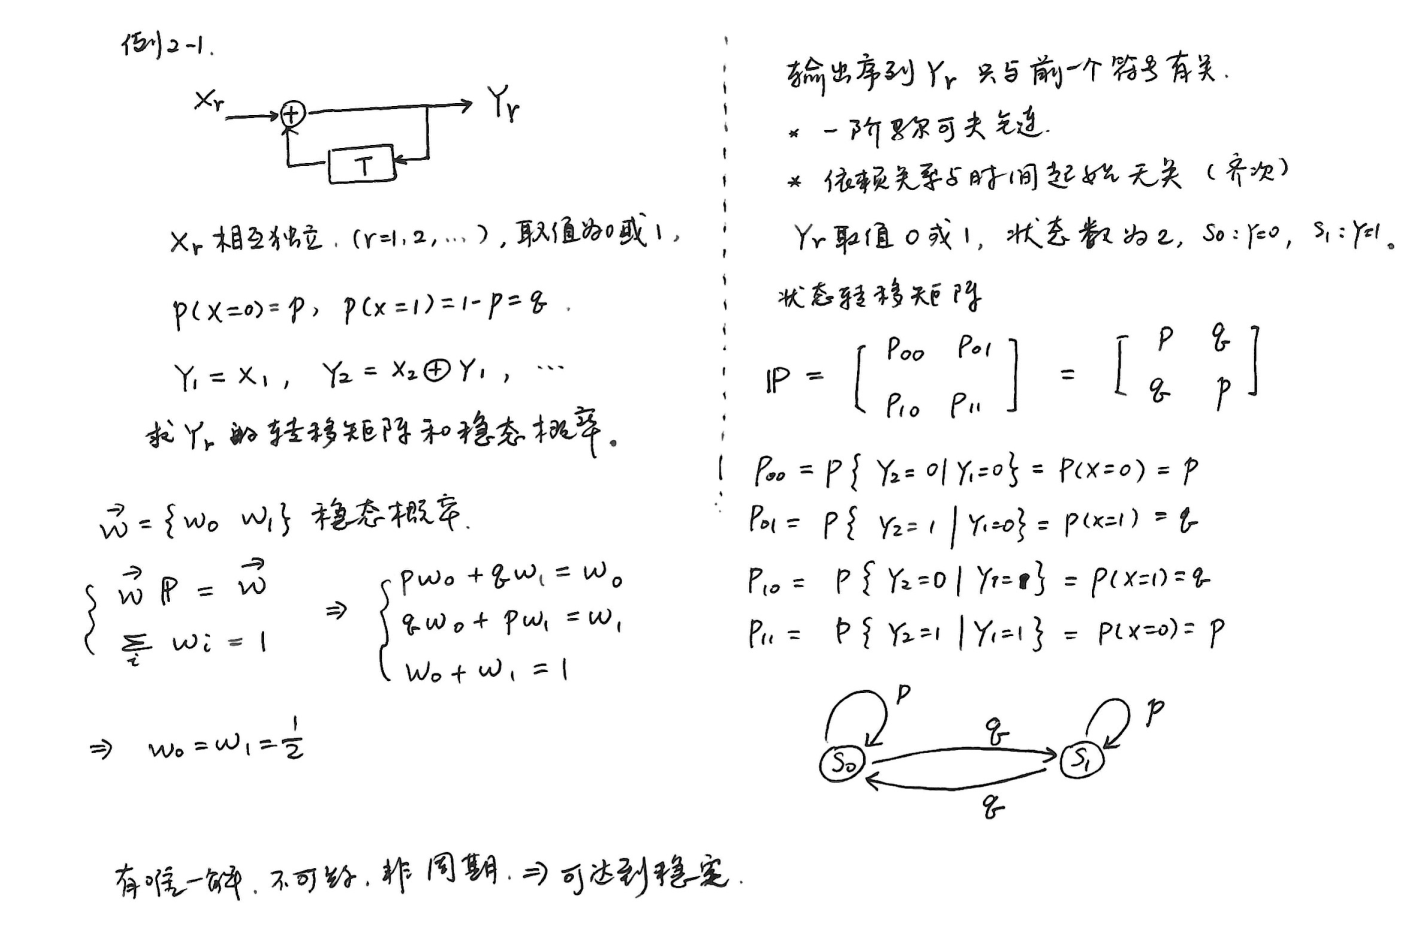 例2-1.
Xr ⊕ Yr
T
Xr 相互独立.(r=1,2,…), 取值为0或1,
P(X=0)=P, P(X=1)=1-P=q.
Y₁ = X₁, Y₂ = X₂⊕Y₁, …
求 Yr 的转移矩阵和稳态概率。
w⃗ = {w₀ w₁} 稳态概率.
{ w⃗ ℙ = w⃗
∑i wi = 1
⇒ { pw₀ + qw₁ = w₀
qw₀ + pw₁ = w₁
w₀ + w₁ = 1
⇒ w₀ = w₁ = 1/2
有唯一解. 不可约. 非周期. ⇒ 可达到稳定.
输出序列 Yr 只与前一个符号有关.
* 一阶马尔可夫链.
* 依赖关系与时间起始无关 (齐次)
Yr 取值 0 或 1, 状态数为 2, S₀: Y=0, S₁: Y=1。
状态转移矩阵
ℙ = [ P₀₀ P₀₁ ] = [ P q ]
[ P₁₀ P₁₁ ] [ q P ]
P₀₀ = P{ Y₂=0|Y₁=0} = P(X=0) = P
P₀₁ = P{ Y₂=1 | Y₁=0} = P(X=1) = q
P₁₀ = P{ Y₂=0 | Y₁=1} = P(X=1) = q
P₁₁ = P{ Y₂=1 | Y₁=1} = P(X=0) = P
P P
q
S₀ S₁
q